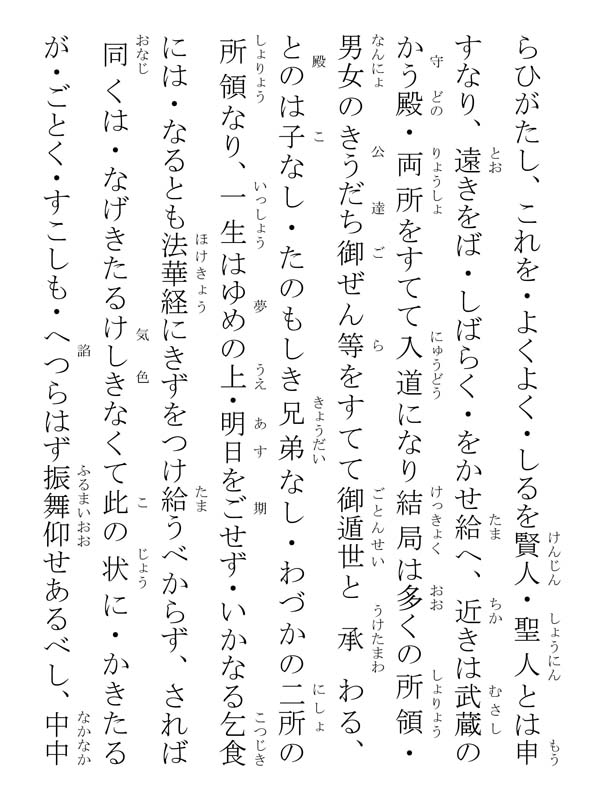 らひがたし、これを・よくよく・しるを賢人・聖人とは申
すなり、遠きをば・しばらく・をかせ給へ、近きは武蔵の
かう殿・両所をすてて入道になり結局は多くの所領・
男女のきうだち御ぜん等をすてて御遁世と承わる、
とのは子なし・たのもしき兄弟なし・わづかの二所の
所領なり、一生はゆめの上・明日をごせず・いかなる乞食
には・なるとも法華経にきずをつけ給うべからず、されば
同くは・なげきたるけしきなくて此の状に・かきたる
が・ごとく・すこしも・へつらはず振舞仰せあるべし、中中